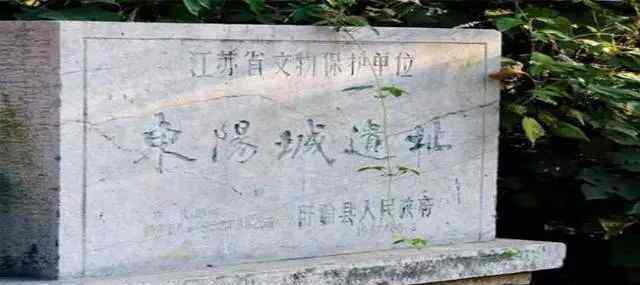 江苏省文物保护单位
東陽城遺址
盱眙县人民政府